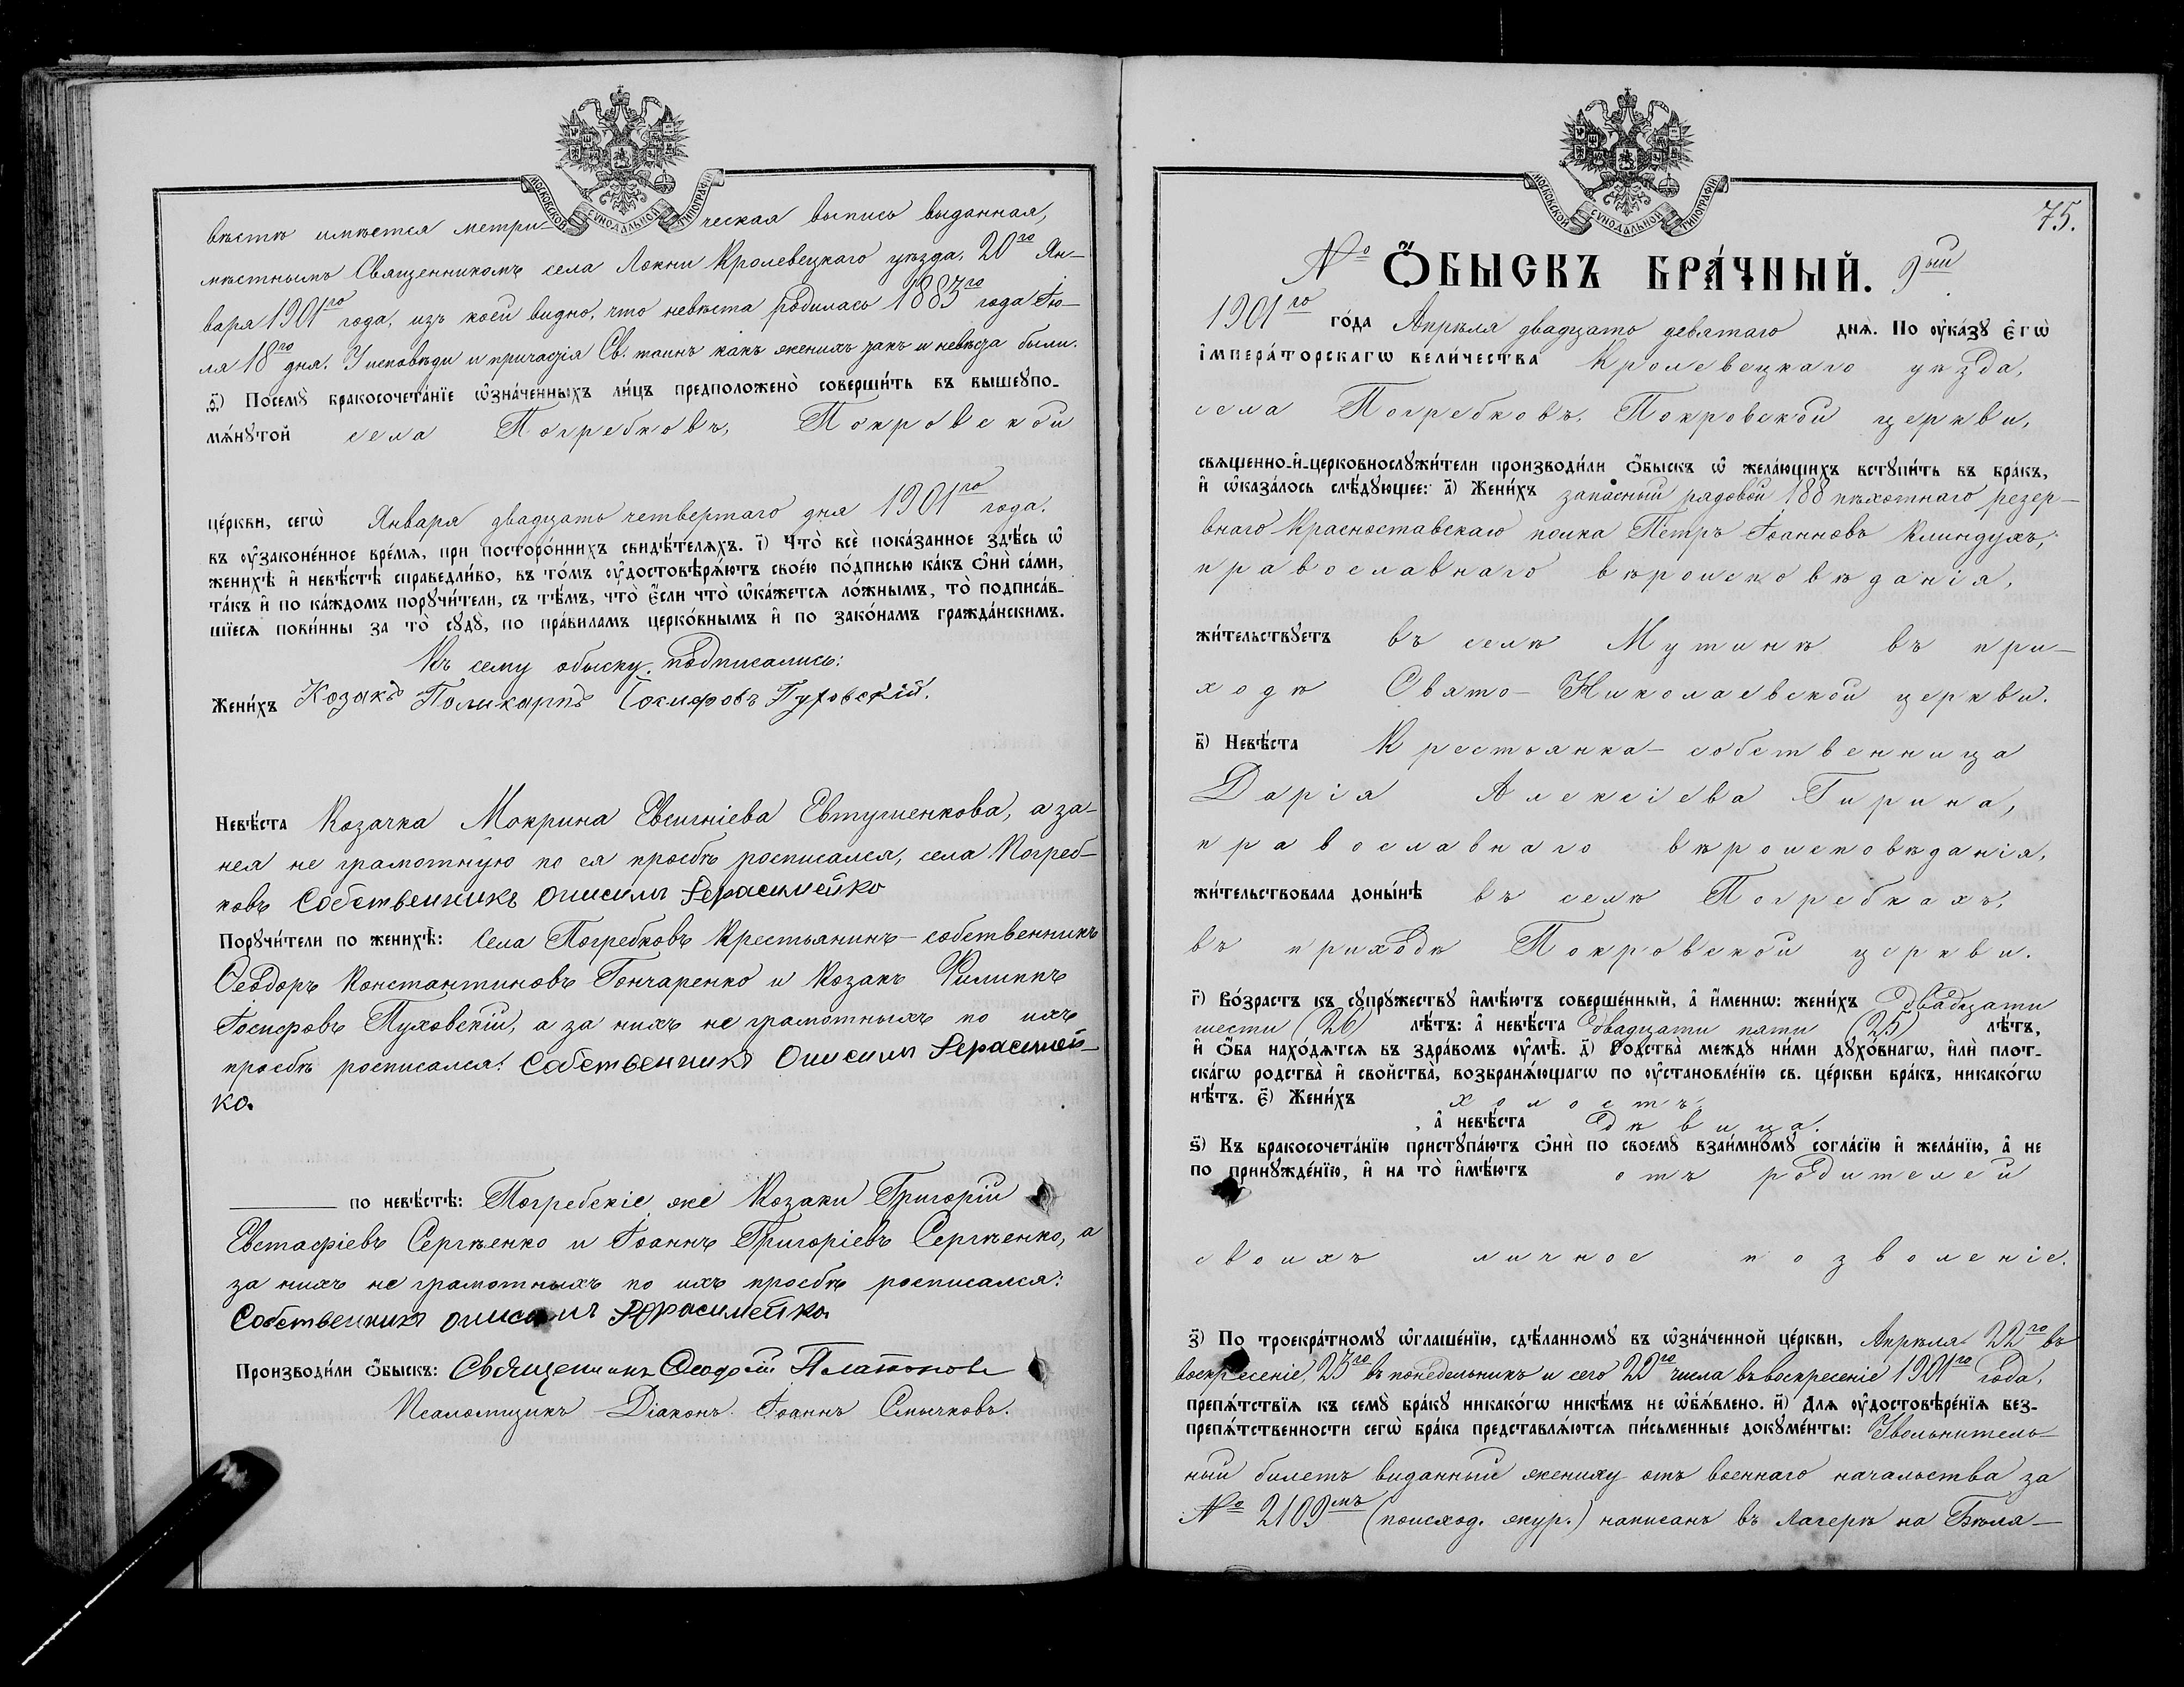 МОСКОВСКОЙ СѴНОДАЛЬНОЙ ТИПОГРАФІИ
вѣстѣ имѣется метри-ческая выпись выданная,
мѣстнымъ Священникомъ села Локни Кролевецкаго уѣзда, 20го Ян-
варя 1901го года, изъ коей видно, что невѣста родилась 1883го года Ію-
ля 18го дня. У исповѣди и причастія Св. таинъ какъ женихъ такъ и невѣста были.
ѳ҃) Посемꙋ̀ бракосочета́нїе ѡ҆зна́ченныхъ ли́цъ предположено̀ соверши́ть въ вышеꙋпо-
мѧ́нꙋтой села Погребковъ, Покровской
це́ркви, сегѡ̀ Января двадцать четвертаго дня 1901го года.
въ ᲂу҆законе́нное вре́мѧ, при посторо́ннихъ свидѣ́телѧхъ. і҃) Что̀ всѐ пока́занное здѣ́сь ѡ҆
женихѣ̀ и҆ невѣ́стѣ справедли́во, въ то́мъ ᲂу҆достовѣрѧ́ютъ свое́ю по́дписью ка́къ ѻ҆нѝ са́ми,
та́къ и҆ по ка́ждомъ порꙋчи́тели, съ тѣ́мъ, что̀ є҆́сли что̀ ѡ҆ка́жетсѧ ло́жнымъ, то̀ подписа́в-
шїесѧ пови́нны за то̀ сꙋдꙋ̀, по пра́виламъ церко́внымъ и҆ по зако́намъ гражда́нскимъ.
Къ сему обыску подписались:
Жени́хъ Козакъ Поликарпъ Іосифовъ Пуховскій.
Невѣ́ста Козачка Мокрина Евсигніева Евтушенкова, а за-
нея не грамотную по ея просьбѣ росписался, села Погреб-
ковъ Собственникъ Онисимъ Герасимейко
Порꙋчи́тели по женихѣ̀: Села Погребковъ Крестьянинъ-собственникъ
Ѳеодоръ Константиновъ Гончаренко и Козакъ Филиппъ
Іосифовъ Пуховскій, а за нихъ не грамотныхъ по ихъ
просьбѣ росписался: Собственникъ Онисимъ Герасимей-
ко.
по невѣ́стѣ: Погребскіе же Козаки Григорій
Евстафіевъ Сергѣенко и Іоаннъ Григоріевъ Сергѣенко, а
за нихъ не грамотныхъ по ихъ просьбѣ росписался:
Собственникъ Онисимъ Герасимейко.
Производи́ли ѻ҆́быскъ: Священникъ Ѳеодосій Платоновъ
Псаломщикъ-Діаконъ Іоаннъ Смычковъ.
МОСКОВСКОЙ СѴНОДАЛЬНОЙ ТИПОГРАФІИ
75.
№ Ѻ҆́БЫСКЪ БРА́ЧНЫЙ. 9ый
1901го го́да Апрѣля двадцать девятаго днѧ̀. По ᲂу҆ка́зꙋ Є҆гѡ̀
И҆мпера́торскагѡ вели́чества Кролевецкаго уѣзда,
села Погребковъ, Покровской церкви,
свѧще́нно-и҆-церковнослꙋжи́тели производи́ли ѻ҆́быскъ ѡ҆ жела́ющихъ встꙋпи́ть въ бра́къ,
и҆ ѡ҆каза́лось слѣ́дꙋющее: а҃) Жени́хъ запасный рядовой 188 пѣхотнаго резер-
внаго Красноставскаго полка Петръ Іоанновъ Клиндухъ,
православнаго вѣроисповѣданія,
жи́тельствꙋетъ въ селѣ Мутинѣ въ при-
ходѣ Свято-Николаевской церкви.
в҃) Невѣ́ста Крестьянка-собственница
Дарія Алексіева Гирина,
православнаго вѣроисповѣданія,
жи́тельствовала доны́нѣ въ селѣ Погребкахъ,
въ приходѣ Покровской церкви.
г҃) Во́зрастъ къ сꙋпрꙋ́жествꙋ и҆мѣ́ютъ соверше́нный, а҆ и҆́меннѡ: жени́хъ двадцати
шести (26) лѣ́тъ: а҆ невѣ́ста двадцати пяти (25) лѣ́тъ,
и҆ ѻ҆́ба нахо́дѧтсѧ въ здра́вомъ ᲂу҆мѣ̀. д҃) Родства̀ междꙋ ни́ми дꙋхо́внагѡ, и҆лѝ плот-
ска́гѡ родства̀ и҆ свойства̀, возбранѧ́ющагѡ по ᲂу҆становле́нїю св. це́ркви бра́къ, никако́гѡ
нѣ́тъ. є҃) Жени́хъ холостъ
, а҆ невѣ́ста дѣвица.
ѕ҃) Къ бракосочета́нїю пристꙋпа́ютъ ѻ҆нѝ по своемꙋ̀ взаи́мномꙋ согла́сїю и҆ жела́нїю, а҆ не
по принꙋжде́нїю, и҆ на то̀ и҆мѣ́ютъ отъ родителей
своихъ личное позволеніе.
з҃) По троекра́тномꙋ ѡ҆глаше́нїю, сдѣ́ланномꙋ въ ѡ҆зна́ченной це́ркви, Апрѣля 22го въ
воскресеніе, 23го въ понедельникъ и сего 29го числа въ воскресеніе 1901го года,
препѧ́тствїѧ къ семꙋ̀ бра́кꙋ никако́гѡ никѣ́мъ не ѡ҆бъѧ́влено. и҃) Для ᲂу҆достовѣре́нїѧ без-
препѧ́тственности сегѡ̀ бра́ка представлѧ́ютсѧ пи́сьменные докꙋме́нты: Увольнитель-
ный билетъ виданный жениху отъ военнаго начальства за
№ 2109мъ (поисход. жур.) написанъ въ лагерѣ на Бѣля-